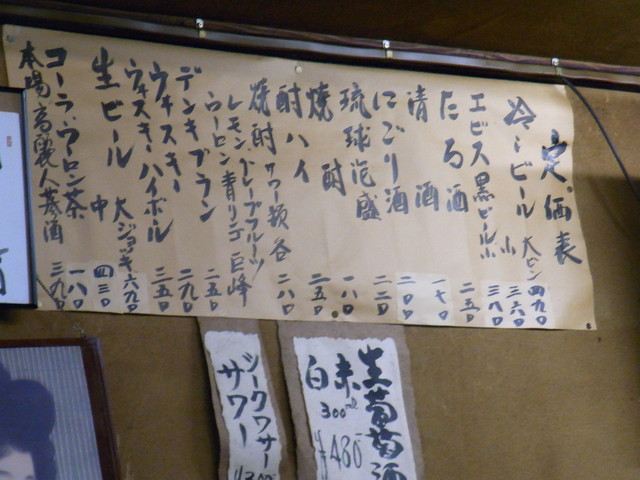 定価表
冷ビール 大ビン 四九〇
小 三六〇
エビス黒ビール小 三八〇
たる酒 二五〇
清酒 一七〇
にごり酒 二〇〇
琉球泡盛 二二〇
焼酎 一八〇
酎ハイ 二五〇
焼酎サワー類各 二八〇
レモン グレープフルーツ
ウーロン 青リンゴ 巨峰
デンキブラン 二五〇
ウヰスキー 二九〇
ウヰスキーハイボール 三五〇
生ビール 大ジョッキ 六九〇
中 四三〇
コーラ・ウーロン茶 一八〇
本場高麗人蔘酒 三九〇
生葡萄酒
赤
白
300ml
¥480
シークワサー
サワー